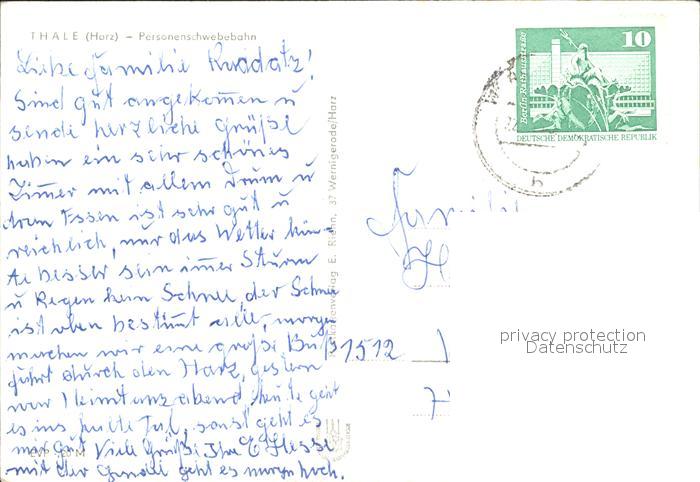 THALE (Harz) – Personenschwebebahn
Liebe Familie Ruddatz!
Sind gut angekommen u
sende herzliche Grüße
haben ein sehr schönes
Zimmer mit allem Drum u
dran Essen ist sehr gut u
reichlich, nur das Wetter könn-
te besser sein immer Sturm
u Regen kein Schnee, der Schnee
ist oben bestimmt alle, morgen
machen wir eine große Buß
fahrt durch den Harz, gestern
war Heimatabend, heute geht
es ins Tal, sonst geht es
mir gut Viele Grüße Ihre E Hesse
mit der Gondel geht es morgen hoch.
37 Wernigerode/Harz
10
Berlin-Rathausstraße
DEUTSCHE DEMOKRATISCHE REPUBLIK
b
Famil
1512
privacy protection
Datenschutz